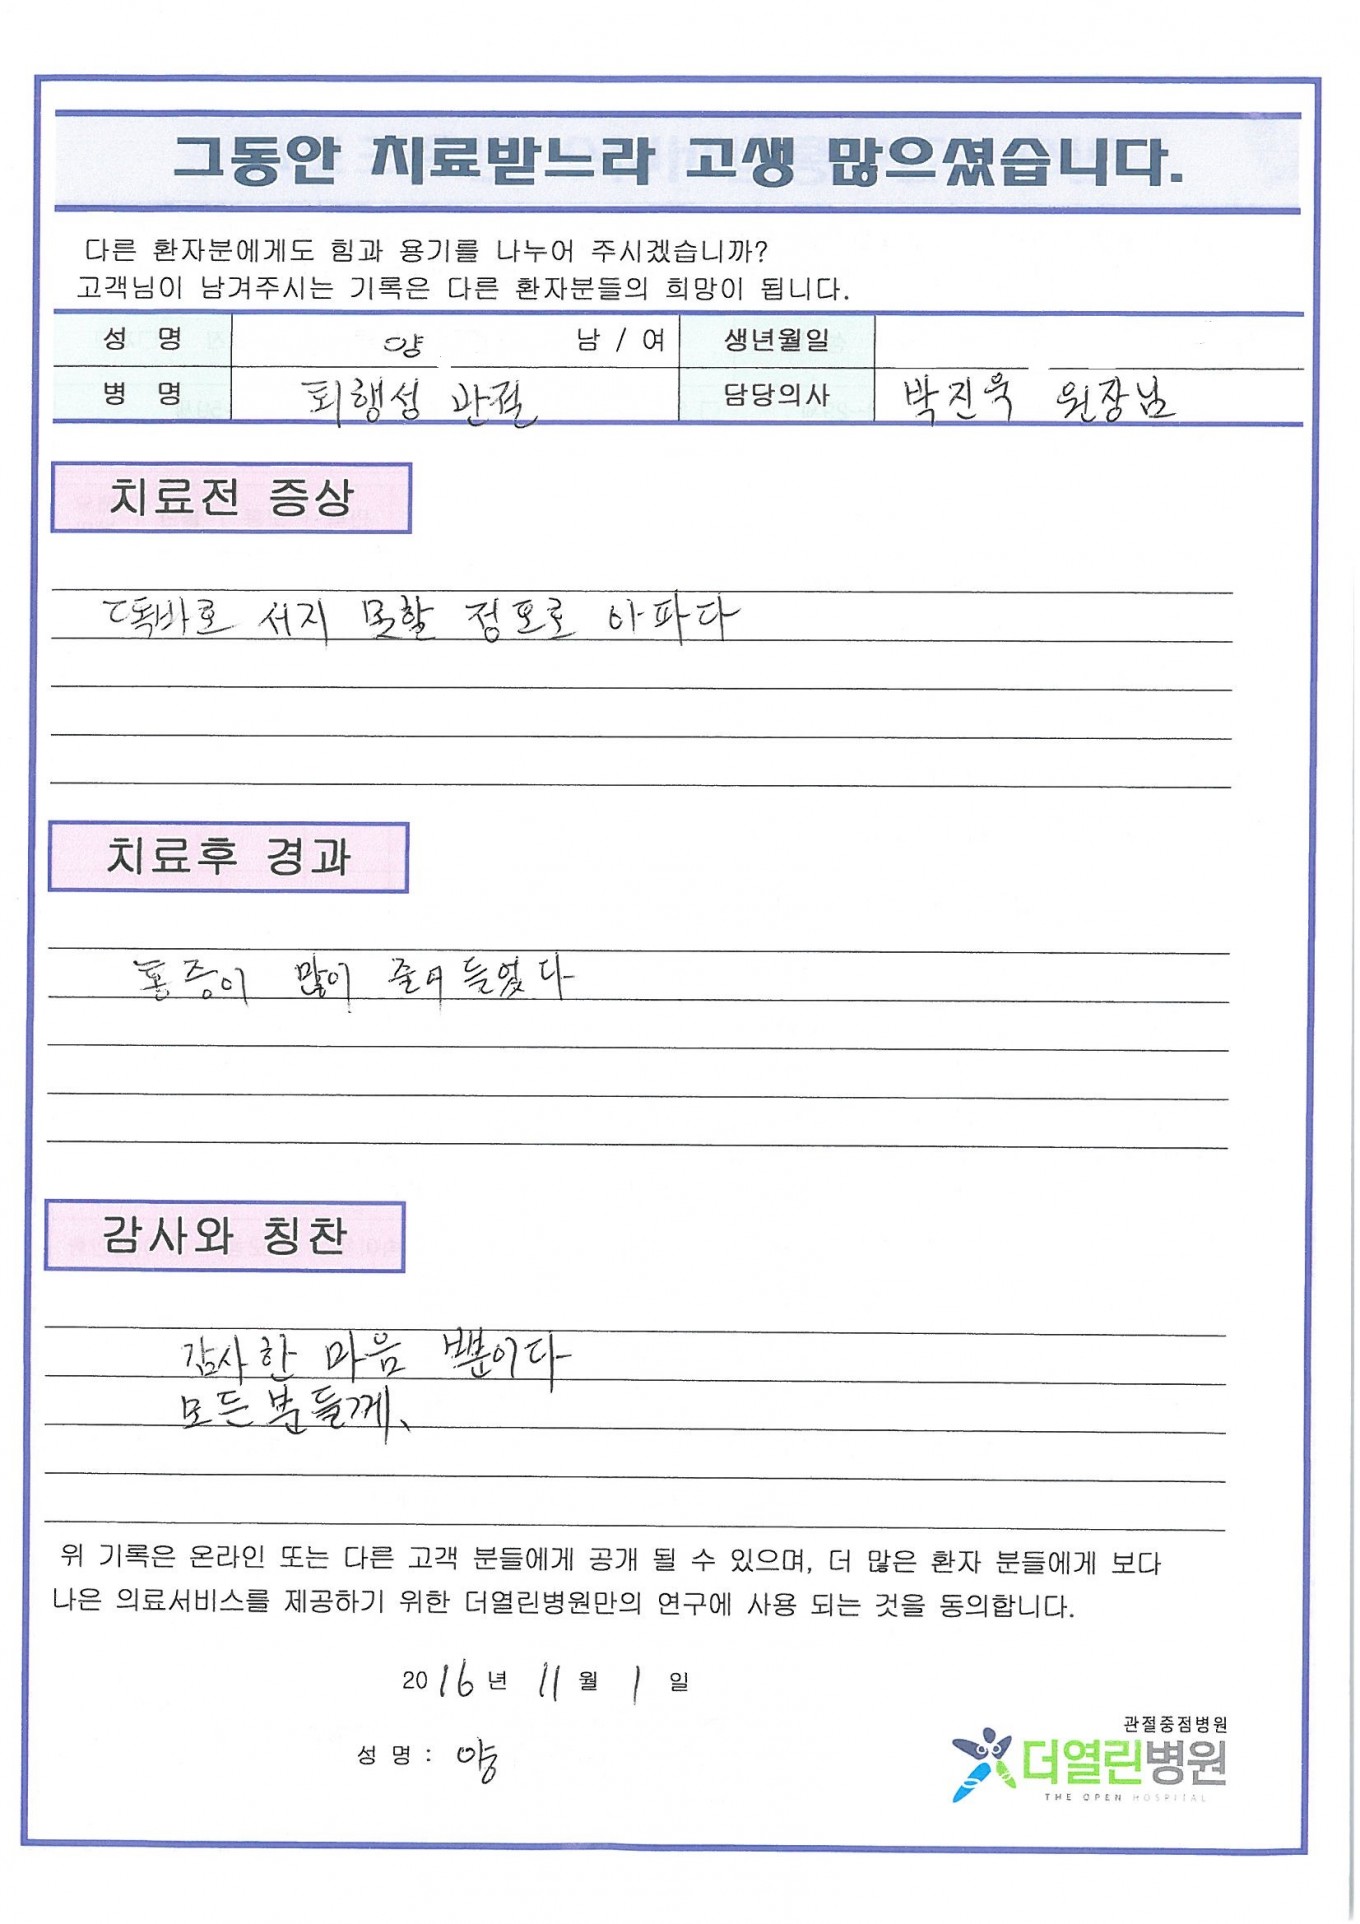 그동안 치료받느라 고생 많으셨습니다.
다른 환자분에게도 힘과 용기를 나누어 주시겠습니까?
고객님이 남겨주시는 기록은 다른 환자분들의 희망이 됩니다.
성 명 양 남 / 여 생년월일
병 명 퇴행성 관절 담당의사 박진욱 원장님
치료전 증상
똑바로 서지 못할 정도로 아파다
치료후 경과
통증이 많이 줄어들었다
감사와 칭찬
감사한 마음 뿐이다
모든분들께、
위 기록은 온라인 또는 다른 고객 분들에게 공개 될 수 있으며, 더 많은 환자 분들에게 보다
나은 의료서비스를 제공하기 위한 더열린병원만의 연구에 사용 되는 것을 동의합니다.
2016년 11월 1 일
성 명 : 양
관절중점병원
더열린병원
THE OPEN HOSPITAL